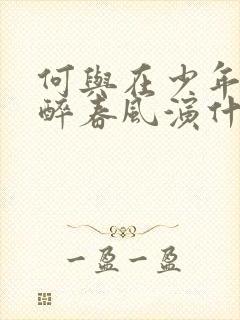 何與在少年
醉春風演什
一盈一盈